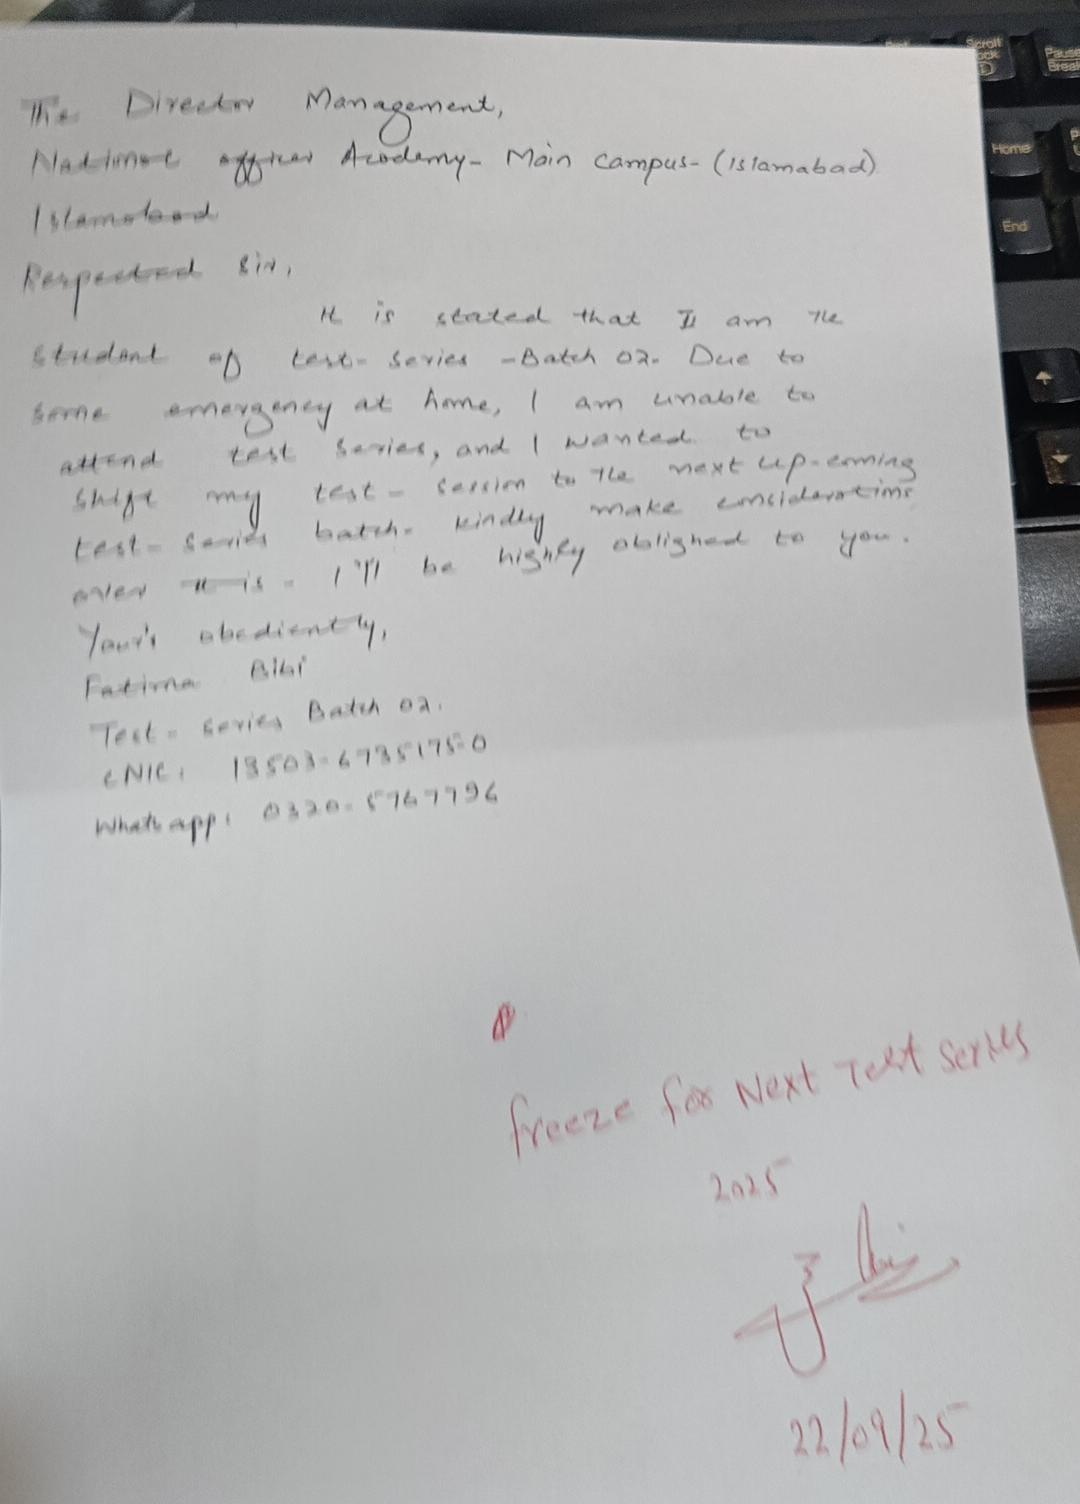 The Director Management,
National officer Academy- Main campus- (Islamabad)
Islamabad
Respected Sir,
It is stated that I am the
student of test- series -Batch 02. Due to
some emergency at home, I am unable to
attend test series, and I wanted to
shift my test- session to the next up-coming
test- series batch. kindly make considerations
over it is. I'll be highly oblighed to you.
Your's obediently,
Fatima Bibi
Test- series Batch 02.
CNIC: 13503-6735175-0
Whatsapp: 0320-5767796
freeze for Next Test Series
2025
22/09/25
Scroll
Lock
Pause
Break
Home
End